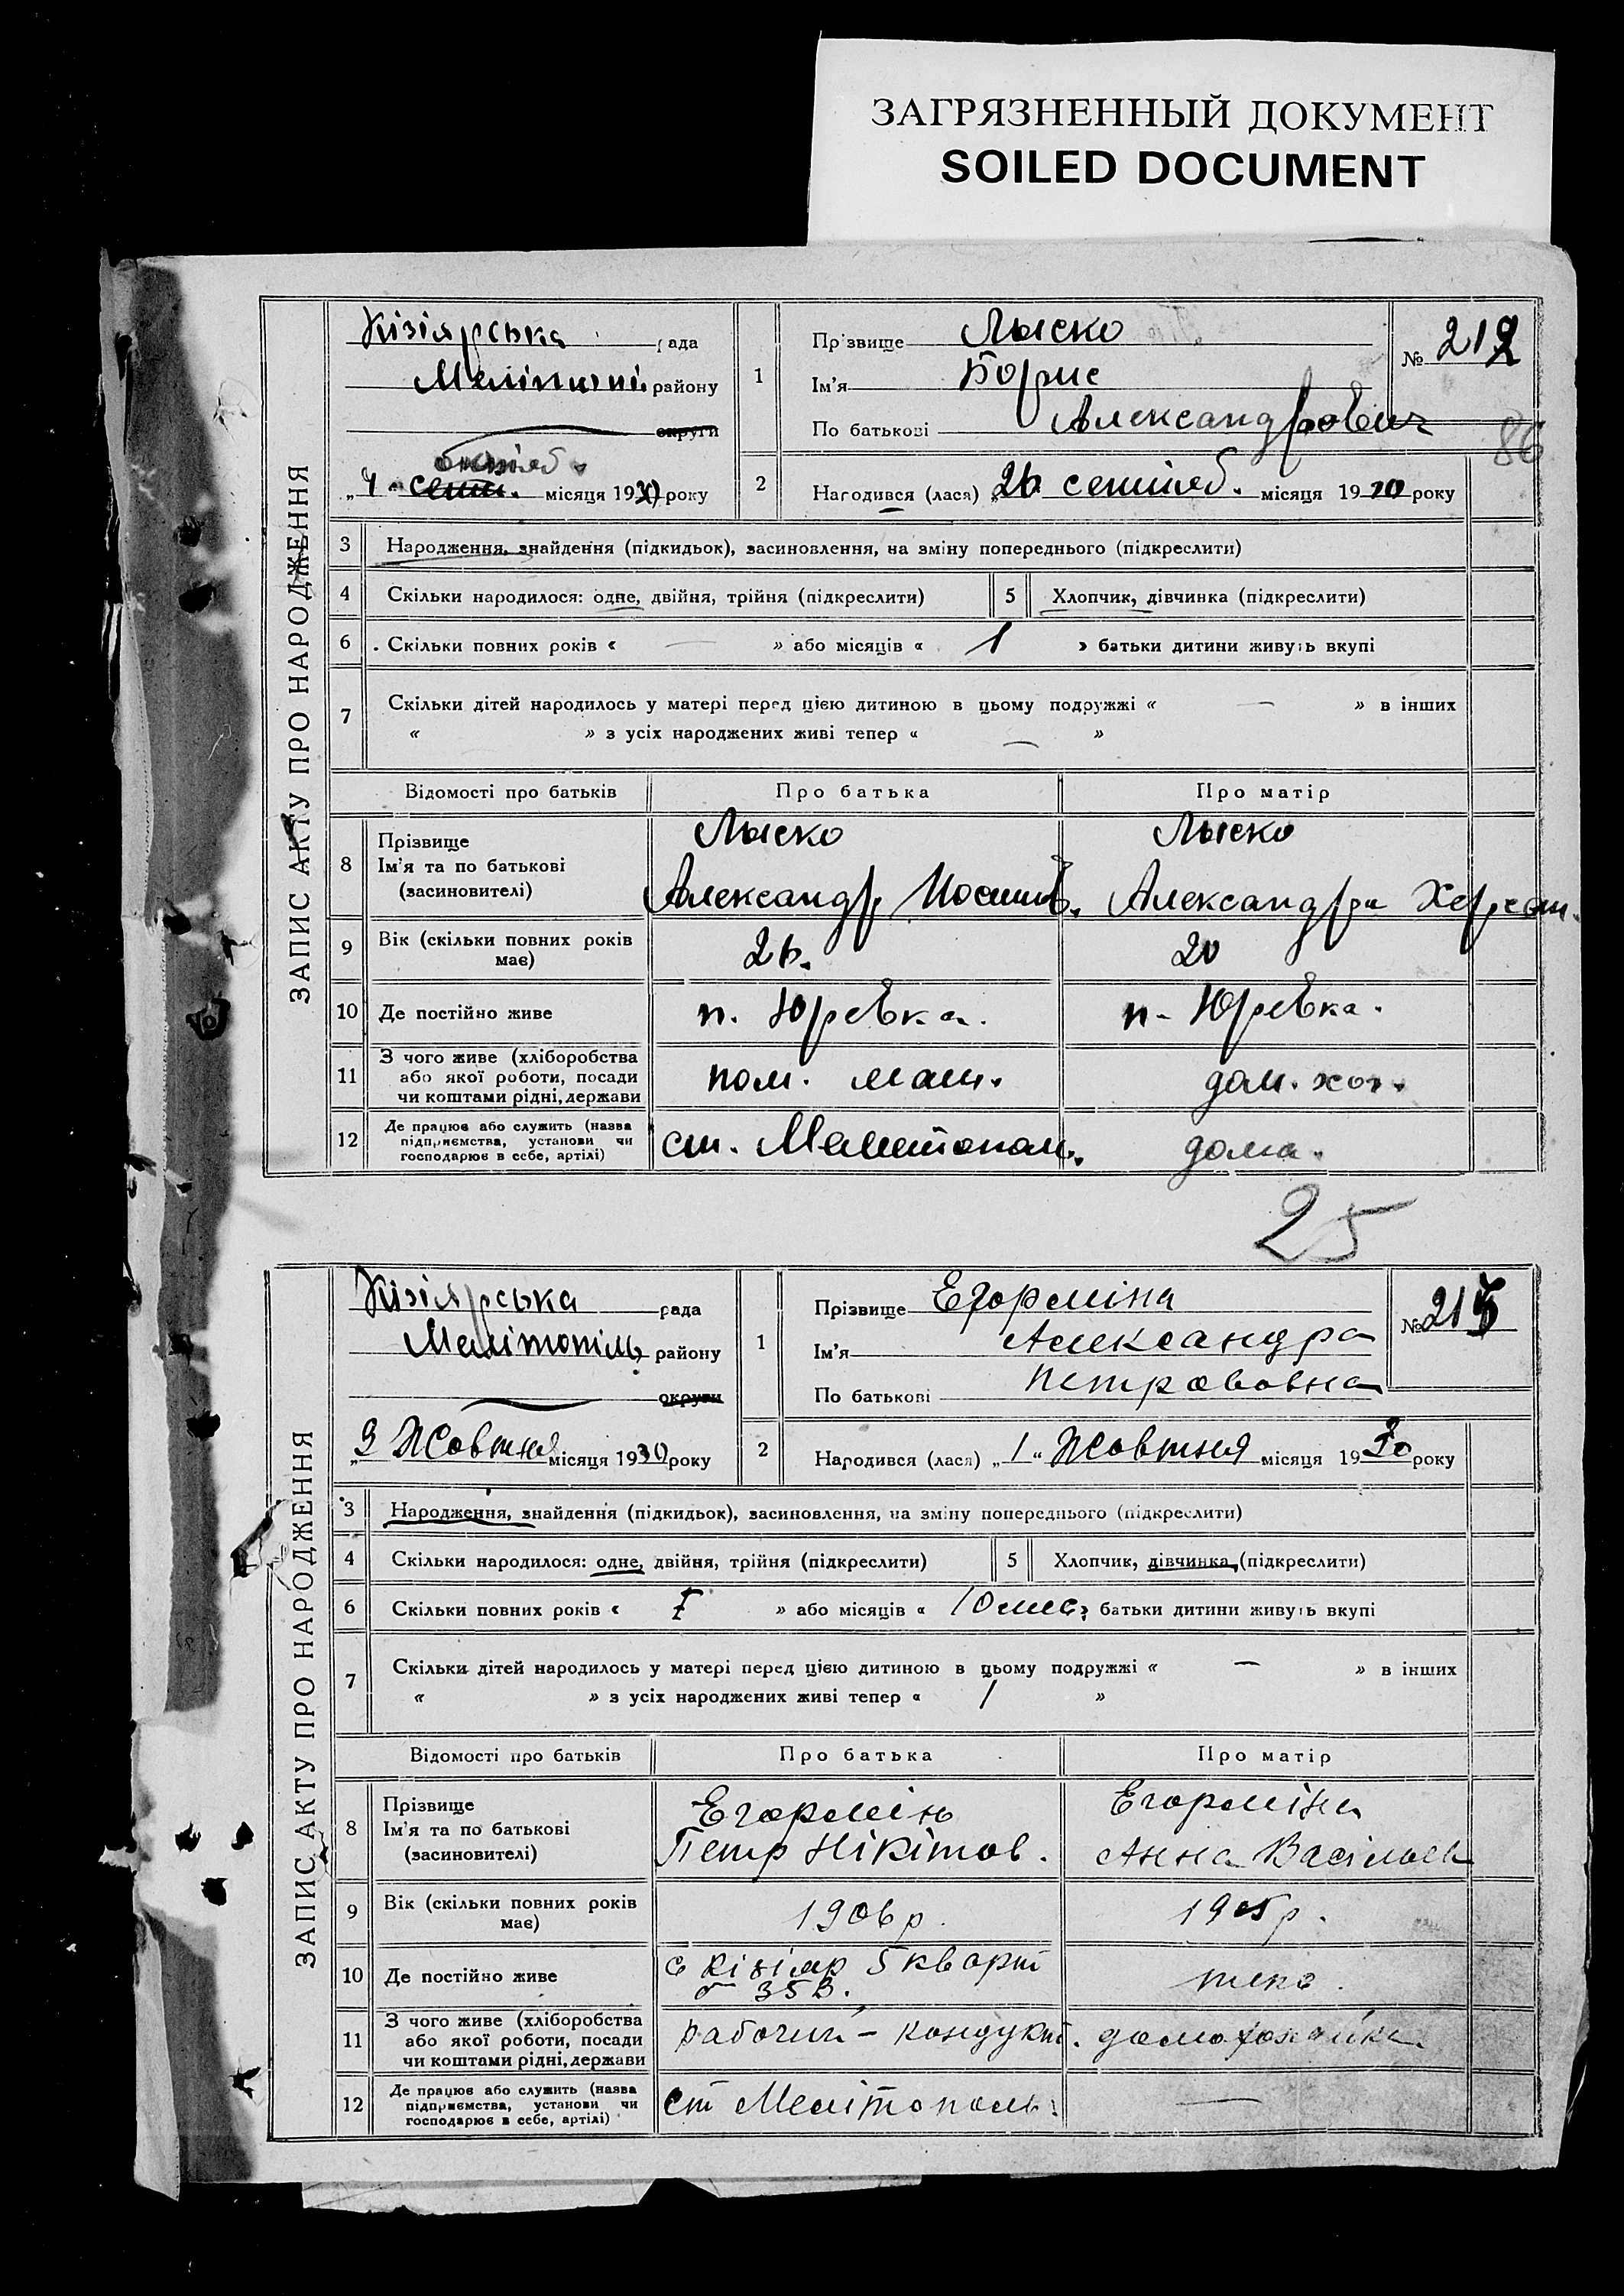 ЗАГРЯЗНЕННЫЙ ДОКУМЕНТ
SOILED DOCUMENT
ЗАПИС АКТУ ПРО НАРОДЖЕННЯ
Кізіярська рада
района району
округи
„4" місяця 1930 року
1
Прізвище Лыско
Ім'я Борис
По батькові Александрович
№ 212
86
2 Народився (лася) „26 сентяб. місяця 1930 року
3 Народження, знайдення (підкидьок), засиновлення, на зміну попереднього (підкреслити)
4 Скільки народилося: одне, двійня, трійня (підкреслити) 5 Хлопчик, дівчинка (підкреслити)
6 Скільки повних років « — » або місяців « 1 » батьки дитини живуть вкупі
7 Скільки дітей народилось у матері перед цією дитиною в цьому подружжі « — » в інших
« » з усіх народжених живі тепер « — »
Відомості про батьків Про батька Про матір
8 Прізвище Ім'я та по батькові (засиновителі)
Лыско Лыско
Александр Иосипов. Александра
9 Вік (скільки повних років має) 26. 20
10 Де постійно живе п. Юревка. п. Юревка.
11 З чого живе (хліборобства або якої роботи, посади чи коштами рідні, держави пом. маш. дом. хоз.
12 Де працює або служить (назва підприємства, установи чи господарює в себе, артілі) ст. Мелитополь. дома.
25
ЗАПИС АКТУ ПРО НАРОДЖЕННЯ
Кізіярська рада
Мелітопіль району
округи
„3 Жовтня місяця 1930 року
1
Прізвище Егорміна
Ім'я Александра
По батькові Петрововна
№ 215
2 Народився (лася) „1" Жовтня місяця 1930 року
3 Народження, знайдення (підкидьок), засиновлення, на зміну попереднього (підкреслити)
4 Скільки народилося: одне, двійня, трійня (підкреслити) 5 Хлопчик, дівчинка (підкреслити)
6 Скільки повних років « » або місяців « 10 мис » батьки дитини живуть вкупі
7 Скільки дітей народилось у матері перед цією дитиною в цьому подружжі « — » в інших
« » з усіх народжених живі тепер « 1 »
Відомості про батьків Про батька Про матір
8 Прізвище Ім'я та по батькові (засиновителі)
Егормінь Егорміна
Петр Нікітов. Анна Васільев
9 Вік (скільки повних років має) 1906 р. 1905 р.
10 Де постійно живе с Кізіяр 5 кварт 35В.
11 З чого живе (хліборобства або якої роботи, посади чи коштами рідні, держави рабочий – кондукт. домохозяйка.
12 Де працює або служить (назва підприємства, установи чи господарює в себе, артілі) ст Мелітополь. —